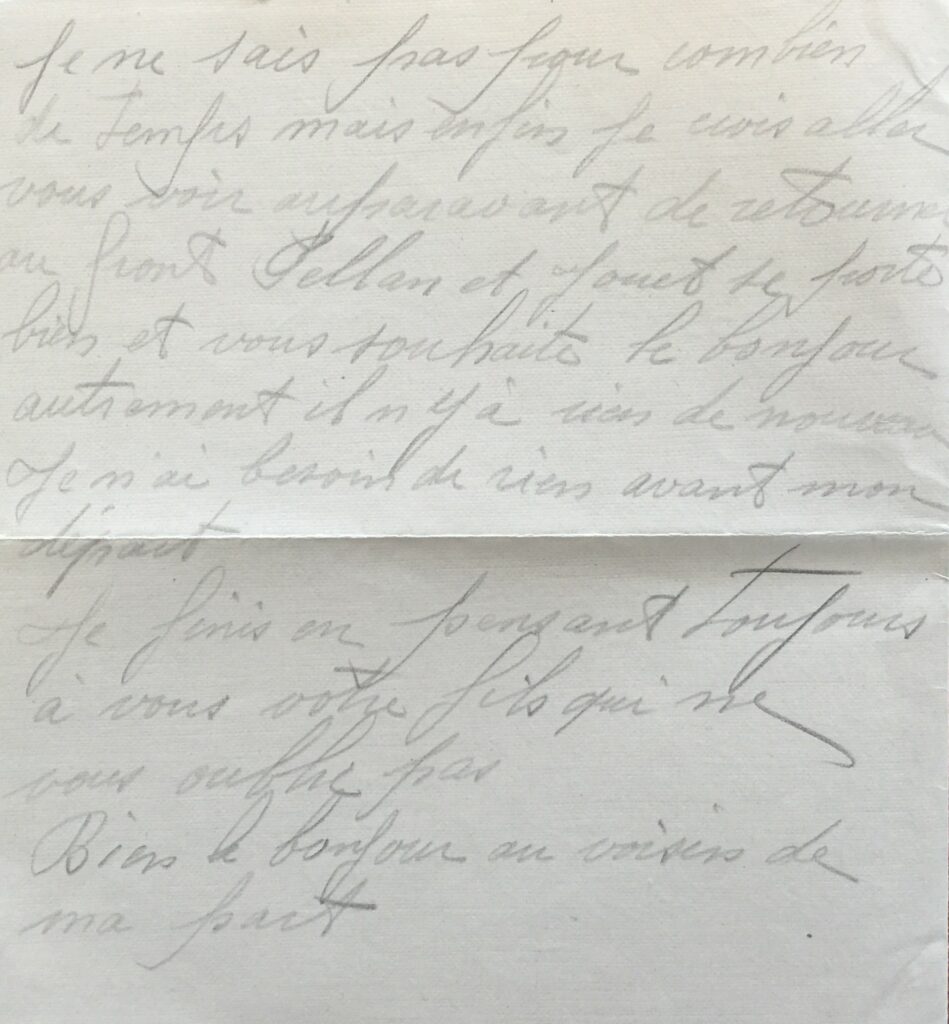 Je ne sais pas pour combien
de temps mais enfin je crois aller
vous voir auparavant de retourner
au front Pellan et Jouet se porte
bien et vous souhaite le bonjour
autrement il n'y à rien de nouveau
Je n'ai besoin de rien avant mon
départ
Je finis en pensant toujours
à vous votre fils qui ne
vous oublie pas
Bien le bonjour au voisin de
ma part